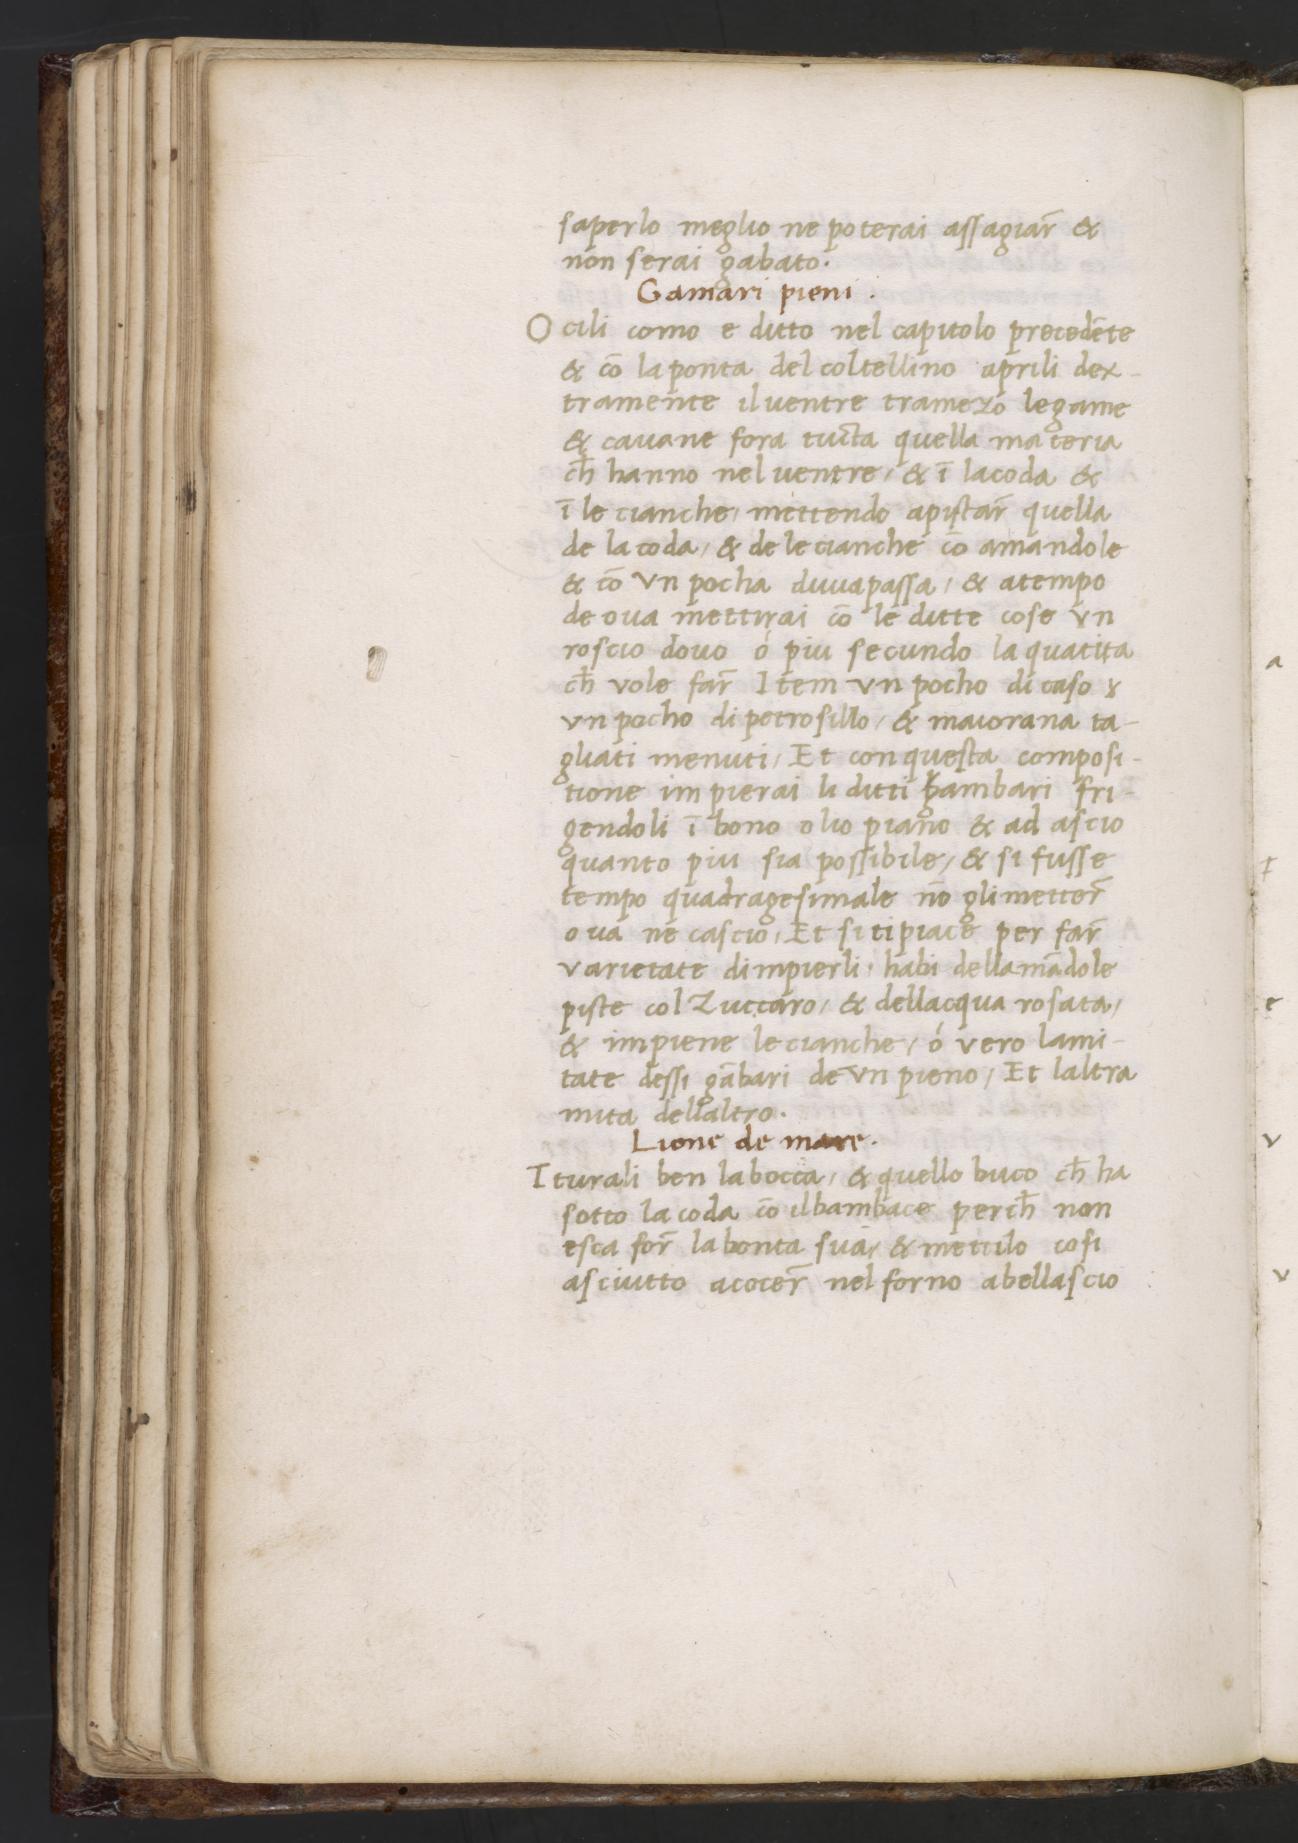 saperlo meglio ne poterai assagiar̄ &
non serai gabato.
Gamari pieni .
O cili como e ditto nel capitolo precedēte
& cō la ponta del coltellino aprili dex-
tramente il uentre tramezo legame
& cauane fora tucta quella materia
ch̄ hanno nel uentre, & ī la coda &
ī le cianche, mettendo apistar̄ quella
de la coda, & de le cianche cō amandole
& cō vn pocha duuapassa, & atempo
de oua mettirai cō le ditte cose vn
roscio douo ó piu secundo la quātita
ch̄ vole far̄ Item vn pocho di caso &
vn pocho di petrosillo, & maiorana ta-
gliati menuti, Et con questa composi-
tione impierai li ditti gambari fri-
gendoli ī bono olio piano & ad ascio
quanto piu sia possibile, & si fusse
tempo quadragesimale nō gli metter̄
oua ne cascio, Et si ti piace per far̄
varietate dimpierli, habi dellamādole
piste col Zuccaro, & dellacqua rosata,
& impiene le cianche, ó vero lami-
tate dessi gābari de vn pieno, Et laltra
mita dellaltro.
Lione de mare.
I turali ben la bocca, & quello buco ch̄ ha
sotto la coda cō il bambace perch̄ non
esca for̄ la bonta sua, & mettilo cosi
asciutto acocer̄ nel forno abellascio
a
e
v
v